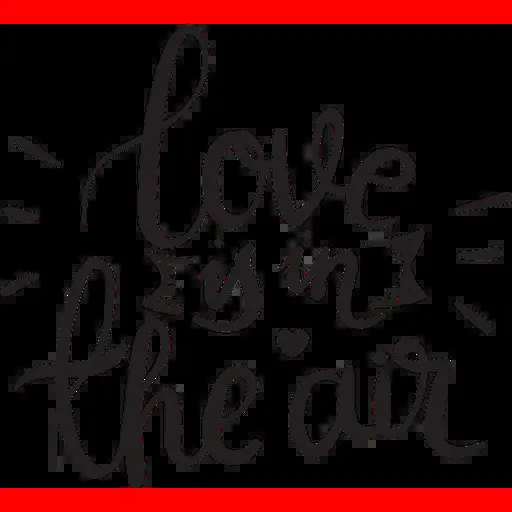 love
is in
the air